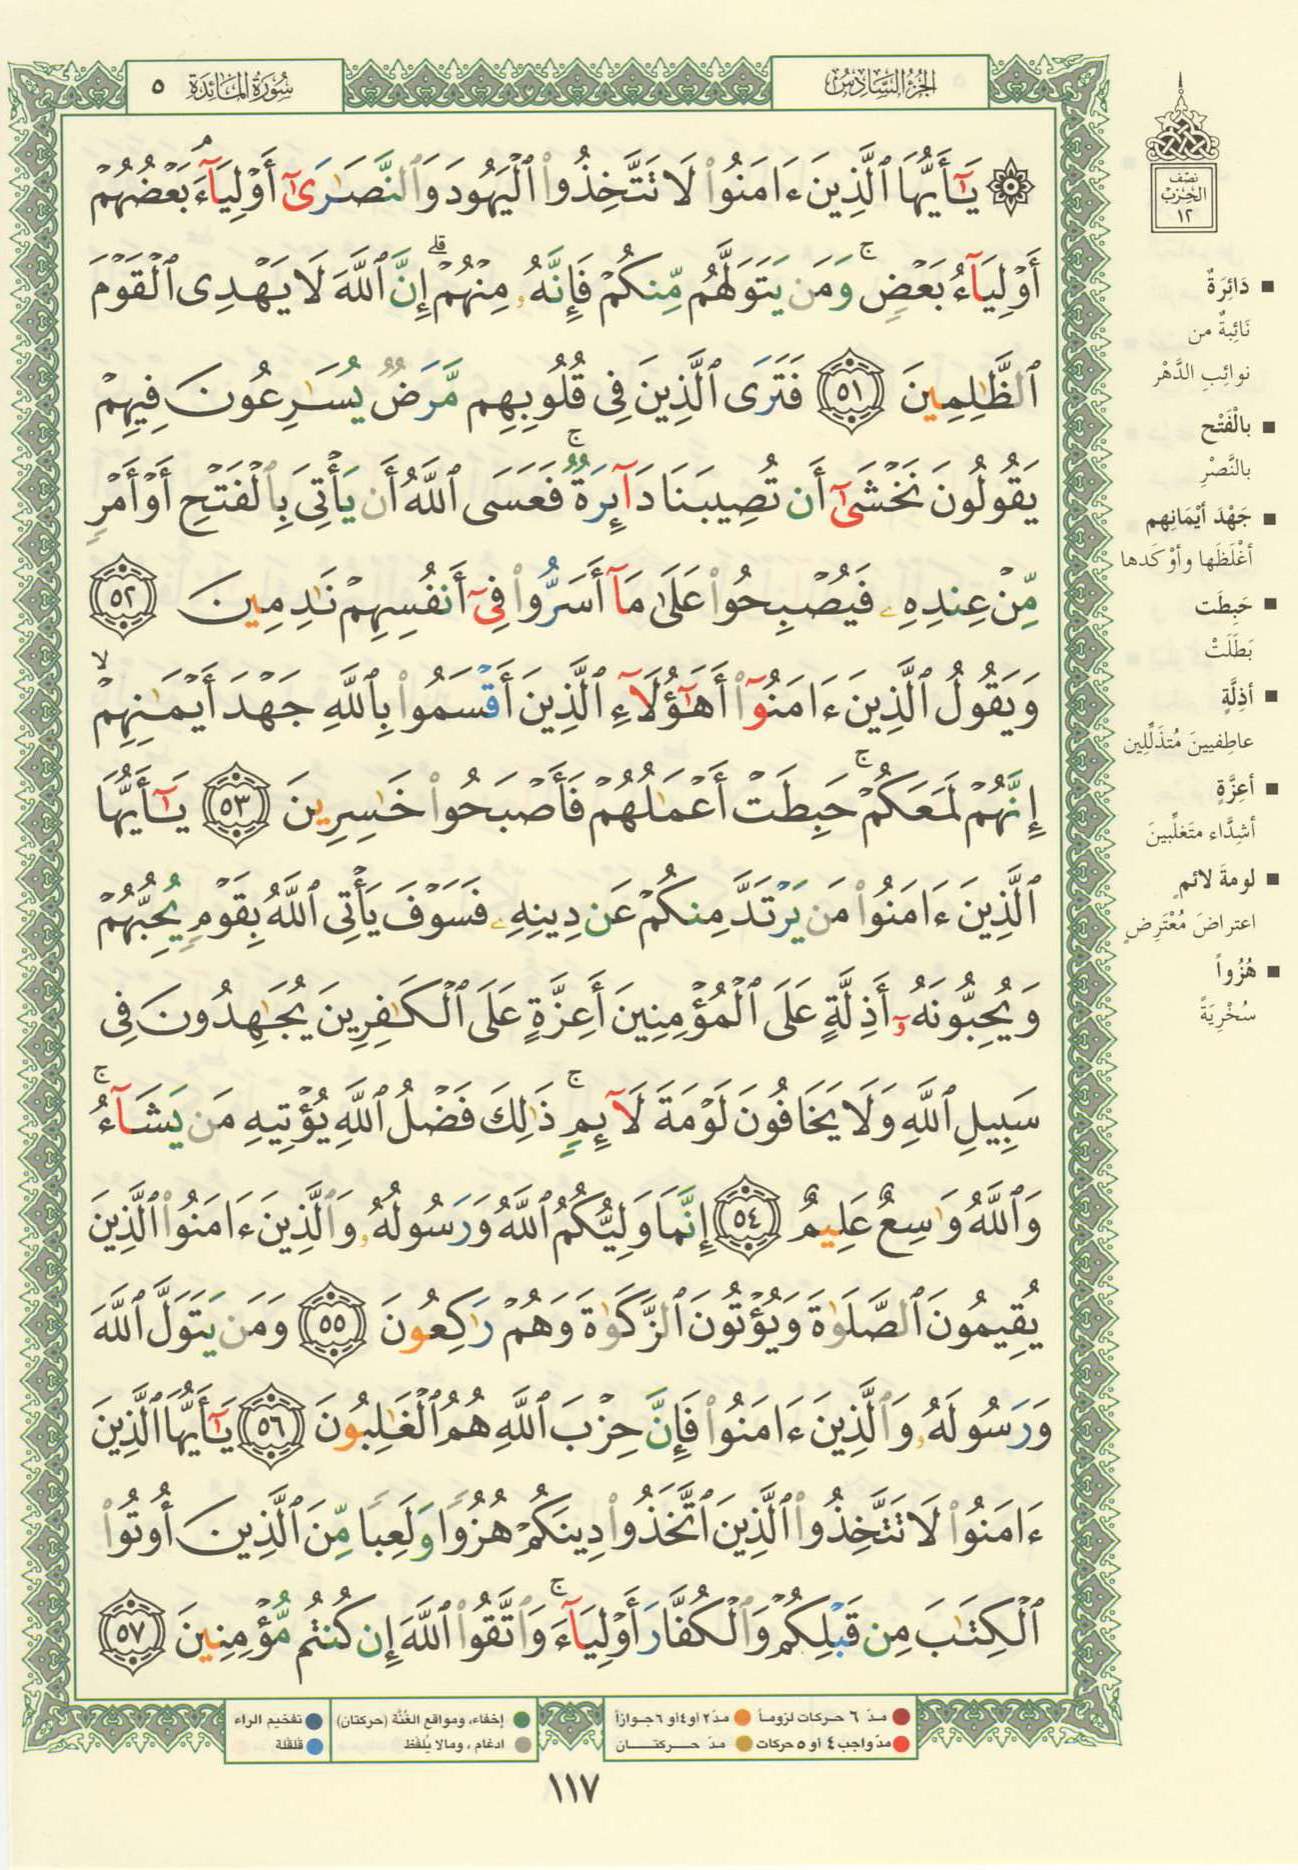 الجزء السادس
سورة المائدة ٥
۞ يَٰٓأَيُّهَا ٱلَّذِينَ ءَامَنُوا۟ لَا تَتَّخِذُوا۟ ٱلْيَهُودَ وَٱلنَّصَٰرَىٰٓ أَوْلِيَآءَ ۘ بَعْضُهُمْ
أَوْلِيَآءُ بَعْضٍ ۚ وَمَن يَتَوَلَّهُم مِّنكُمْ فَإِنَّهُۥ مِنْهُمْ ۗ إِنَّ ٱللَّهَ لَا يَهْدِى ٱلْقَوْمَ
ٱلظَّٰلِمِينَ ٥١ فَتَرَى ٱلَّذِينَ فِى قُلُوبِهِم مَّرَضٌ يُسَٰرِعُونَ فِيهِمْ
يَقُولُونَ نَخْشَىٰٓ أَن تُصِيبَنَا دَآئِرَةٌ ۚ فَعَسَى ٱللَّهُ أَن يَأْتِىَ بِٱلْفَتْحِ أَوْ أَمْرٍ
مِّنْ عِندِهِۦ فَيُصْبِحُوا۟ عَلَىٰ مَآ أَسَرُّوا۟ فِىٓ أَنفُسِهِمْ نَٰدِمِينَ ٥٢
وَيَقُولُ ٱلَّذِينَ ءَامَنُوٓا۟ أَهَٰٓؤُلَآءِ ٱلَّذِينَ أَقْسَمُوا۟ بِٱللَّهِ جَهْدَ أَيْمَٰنِهِمْ ۙ
إِنَّهُمْ لَمَعَكُمْ ۚ حَبِطَتْ أَعْمَٰلُهُمْ فَأَصْبَحُوا۟ خَٰسِرِينَ ٥٣ يَٰٓأَيُّهَا
ٱلَّذِينَ ءَامَنُوا۟ مَن يَرْتَدَّ مِنكُمْ عَن دِينِهِۦ فَسَوْفَ يَأْتِى ٱللَّهُ بِقَوْمٍ يُحِبُّهُمْ
وَيُحِبُّونَهُۥٓ أَذِلَّةٍ عَلَى ٱلْمُؤْمِنِينَ أَعِزَّةٍ عَلَى ٱلْكَٰفِرِينَ يُجَٰهِدُونَ فِى
سَبِيلِ ٱللَّهِ وَلَا يَخَافُونَ لَوْمَةَ لَآئِمٍ ۚ ذَٰلِكَ فَضْلُ ٱللَّهِ يُؤْتِيهِ مَن يَشَآءُ ۚ
وَٱللَّهُ وَٰسِعٌ عَلِيمٌ ٥٤ إِنَّمَا وَلِيُّكُمُ ٱللَّهُ وَرَسُولُهُۥ وَٱلَّذِينَ ءَامَنُوا۟ ٱلَّذِينَ
يُقِيمُونَ ٱلصَّلَوٰةَ وَيُؤْتُونَ ٱلزَّكَوٰةَ وَهُمْ رَٰكِعُونَ ٥٥ وَمَن يَتَوَلَّ ٱللَّهَ
وَرَسُولَهُۥ وَٱلَّذِينَ ءَامَنُوا۟ فَإِنَّ حِزْبَ ٱللَّهِ هُمُ ٱلْغَٰلِبُونَ ٥٦ يَٰٓأَيُّهَا ٱلَّذِينَ
ءَامَنُوا۟ لَا تَتَّخِذُوا۟ ٱلَّذِينَ ٱتَّخَذُوا۟ دِينَكُمْ هُزُوًا وَلَعِبًا مِّنَ ٱلَّذِينَ أُوتُوا۟
ٱلْكِتَٰبَ مِن قَبْلِكُمْ وَٱلْكُفَّارَ أَوْلِيَآءَ ۚ وَٱتَّقُوا۟ ٱللَّهَ إِن كُنتُم مُّؤْمِنِينَ ٥٧
نصف
الحزب
١٢
■ دَائِرَةٌ
نَائِبةٌ من
نوائِبِ الدَّهْر
■ بالْفَتْح
بالنَّصْرِ
■ جَهْدَ أَيْمَانِهِم
أغْلَظَها وأوْكَدها
■ حَبِطَت
بَطَلَتْ
■ أذِلَّةٍ
عاطِفيينَ مُتذَلِّلِين
■ أعِزَّةٍ
أشِدَّاء متَغلِّبينَ
■ لومةَ لائمٍ
اعتراضَ مُعْتَرِضٍ
■ هُزُواً
سُخْرِيَةً
مدّ ٦ حركات لزوماً ● مدّ ٢ أو ٤ أو ٦ جوازاً ● إخفاء، ومواقع الغُنَّة (حركتان) ● تفخيم الراء
مدّ واجب ٤ أو ٥ حركات ● مدّ حــركتــــان ● ادغام ، ومالا يُلفَظ ● قلقلة
١١٧